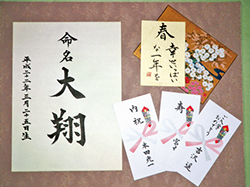 命名
大翔
平成二十二年三月二十五日生
春
幸せいっぱい
な一年を
内祝
米田
寿
宮
吉沢